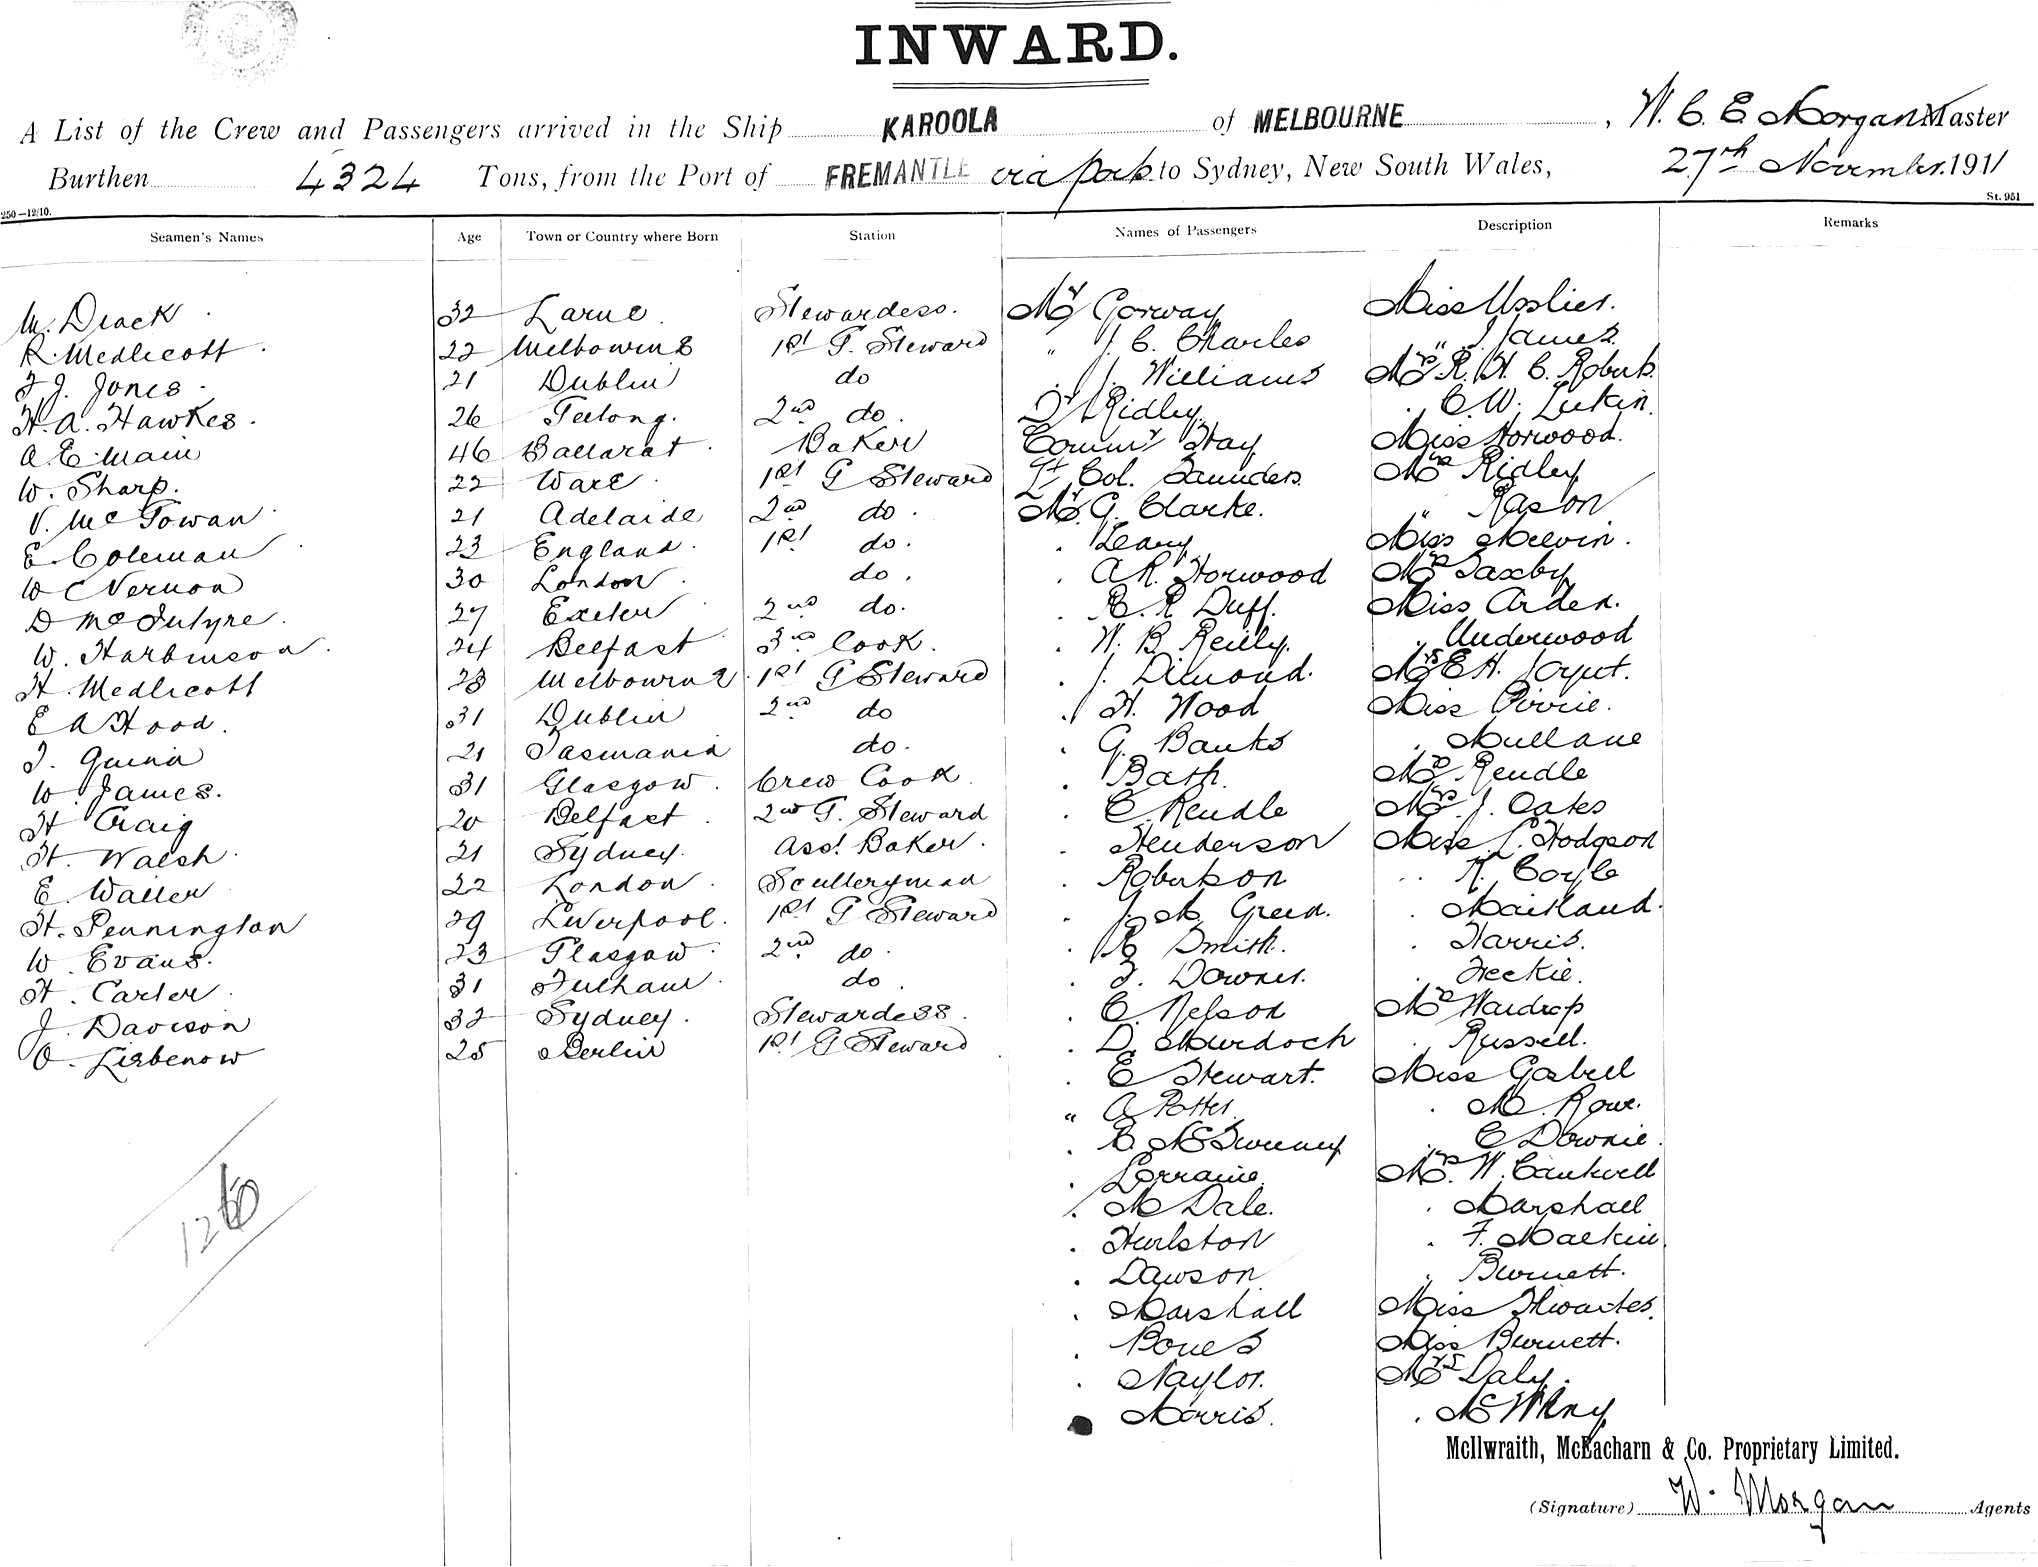 INWARD.
A List of the Crew and Passengers arrived in the Ship KAROOLA of MELBOURNE, W. C. E Morgan Master
Burthen 4324 Tons, from the Port of FREMANTLE via ports to Sydney, New South Wales, 27th November 1911
250—12/10. St. 951
Seamen's Names Age Town or Country where Born Station Names of Passengers Description Remarks
M. Drack 32 Larne Stewardess. Mr Gorway Miss Usslier.
R. Medlicott 22 Melbourne 1st G. Steward " J. C. Charles " J James.
F J. Jones 21 Dublin do . J. Williams Mrs R. H. C. Roberts.
H. A. Hawkes 26 Geelong. 2nd do. Dr Ridley. . C. W. Lukin.
A. E. Main 46 Ballarat Baker Commr Hay Miss Horwood.
W. Sharp. 22 Ware 1st G Steward Lt Col. Saunders. Mrs Ridley
V. McGowan 21 Adelaide 2nd do. Mr. G. Clarke. " Rason
E. Coleman 23 England. 1st do. . Leary. Miss Melvin.
W C Vernon 30 London do. . A. R. Horwood Mrs Saxby
D McIntyre. 27 Exeter 2nd do. . R. R Duff. Miss Arden.
W. Harbinson 24 Belfast 3rd Cook. . W. B. Reilly. " Underwood
H. Medlicott 28 Melbourne 1st G Steward . J. Dimond. Mrs E. H.
E A Hood. 31 Dublin 2nd do . H. Wood Miss Pirrie.
J. Quinn 21 Tasmania do. . G. Banks " Mullane
W. James. 31 Glasgow. Crew Cook . Bath. Mrs Rendle
H Craig 20 Belfast 2nd G. Steward . C. Rendle Mrs. J. Oates
H. Walsh. 21 Sydney. Asst Baker. . Henderson Miss L. Hodgson
E. Waller 22 London Sculleryman . Robertson " K. Coyle
H. Pennington 29 Liverpool. 1st G Steward . J. M Green. . Maitland.
W. Evans. 23 Glasgow 2nd do. . R Smith. . Harris.
H. Carter 31 Fulham do . J. Downes. . Feckie.
J. Davison 32 Sydney. Stewardess. . C. Nelson Mrs Wardrop
O. Liebenow 25 Berlin 1st G Steward . D. Murdoch . Russell.
. E Stewart. Miss Gosbell
" A Potter. . M. Rowe.
. C. McSweeney . C Downie.
. Lorraine. Mrs. W. Cantwell
. M Dale. . Marshall
. Hurlston . F. Mackie
. Dawson " Burnett.
. Marshall Miss Thwaites.
. Bones Miss Burnett.
. Naylor. Mrs Daly.
. Morris.
126
McIlwraith, McEacharn & Co. Proprietary Limited.
(Signature) W. Morgan Agents